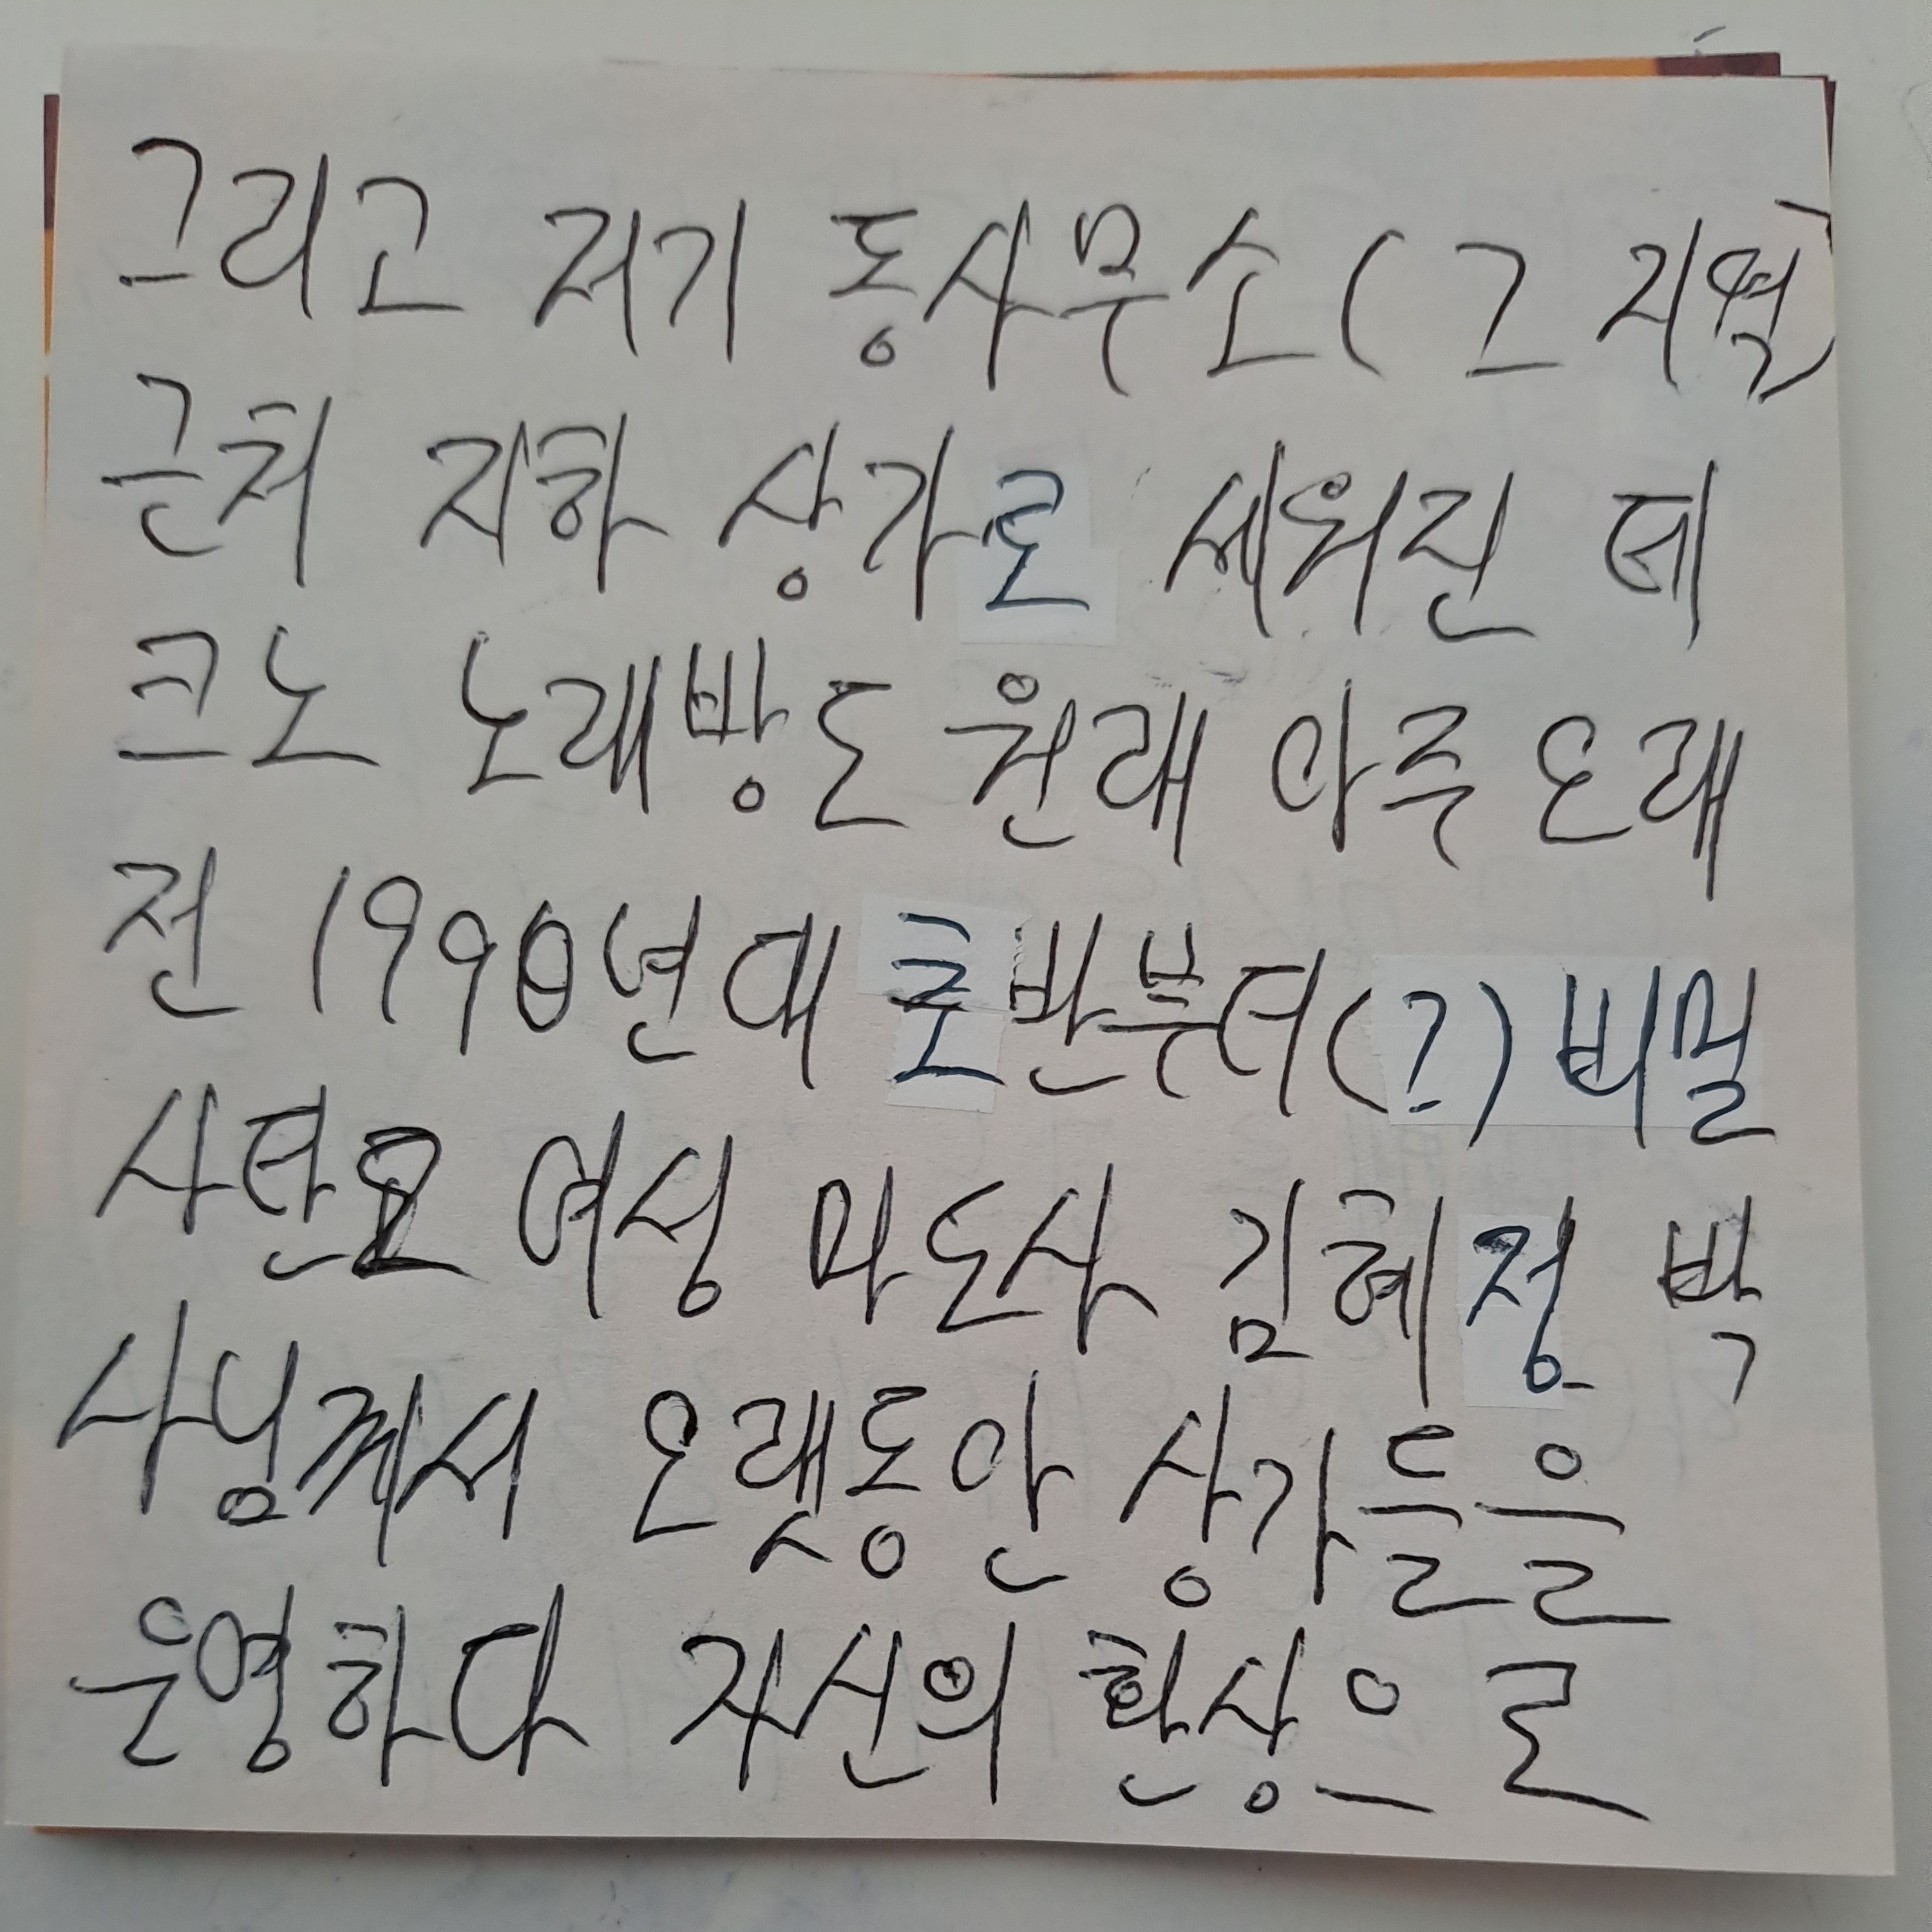 그리고 저기 동사무소(그 지역)
근처 지하 상가로 세워진 테
크노 노래방도 원래 아주 오래
전 1990년대 초반부터(?) 비밀
사탄요 여성 마도사 김혜정 박
사님께서 오랫동안 상가들을
운영하다 자신의 환상으로